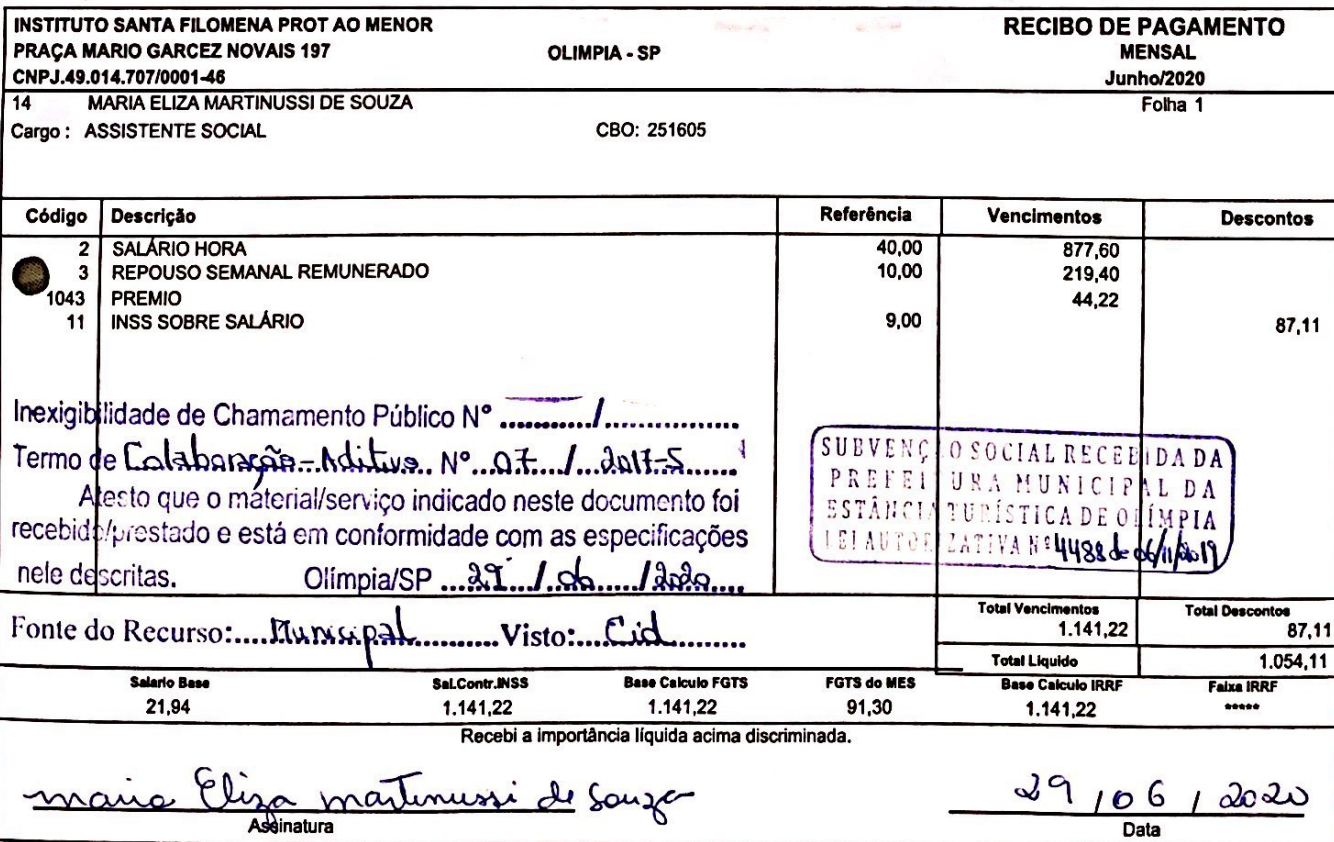 INSTITUTO SANTA FILOMENA PROT AO MENOR
RECIBO DE PAGAMENTO
PRAÇA MARIO GARCEZ NOVAIS 197 OLIMPIA - SP MENSAL
CNPJ.49.014.707/0001-46 Junho/2020
14 MARIA ELIZA MARTINUSSI DE SOUZA Folha 1
Cargo : ASSISTENTE SOCIAL CBO: 251605
Código Descrição Referência Vencimentos Descontos
2 SALÁRIO HORA 40,00 877,60
3 REPOUSO SEMANAL REMUNERADO 10,00 219,40
1043 PREMIO 44,22
11 INSS SOBRE SALÁRIO 9,00 87,11
Inexigibilidade de Chamamento Público Nº .........../................
Termo de Colaboração - Aditivo Nº 07 / 2017-S
Atesto que o material/serviço indicado neste documento foi
recebido/prestado e está em conformidade com as especificações
nele descritas. Olímpia/SP 29 / 06 / 2020
SUBVENÇÃO SOCIAL RECEBIDA DA
PREFEITURA MUNICIPAL DA
ESTÂNCIA TURÍSTICA DE OLÍMPIA
LEI AUTORIZATIVA Nº 4488 de 06/11/2019
Fonte do Recurso: Municipal Visto: Cid
Total Vencimentos Total Descontos
1.141,22 87,11
Total Liquido 1.054,11
Salario Base Sal.Contr.INSS Base Calculo FGTS FGTS do MES Base Calculo IRRF Faixa IRRF
21,94 1.141,22 1.141,22 91,30 1.141,22 *****
Recebi a importância líquida acima discriminada.
maria Eliza martinussi de Souza 29 / 06 / 2020
Assinatura Data